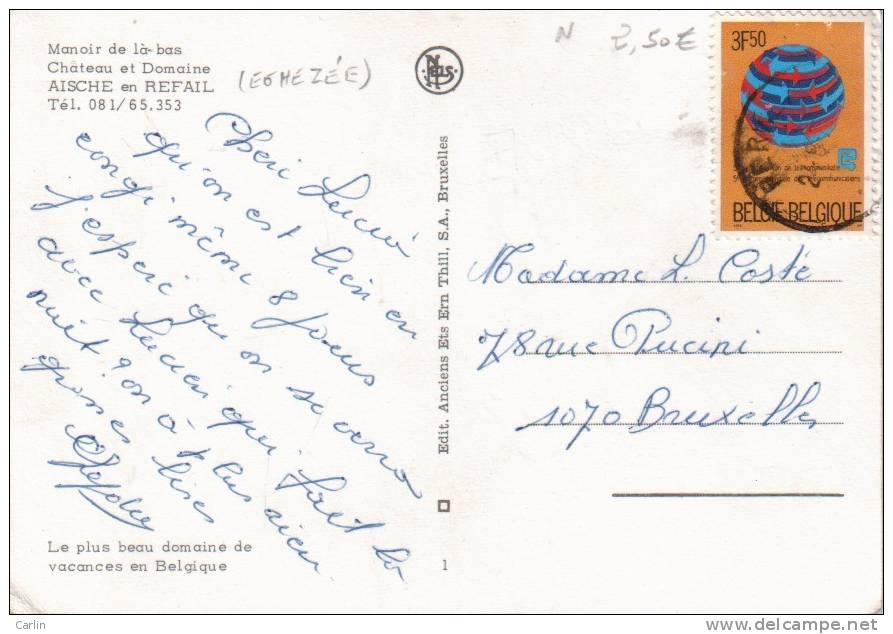 Manoir de là-bas
Château et Domaine
AISCHE en REFAIL
Tél. 081/65.353
(EGHEZÉE)
NELS
N 2,50€
3F50
BELGIË-BELGIQUE
Cheri Lucie
qu'on est bien en
congé même 8 jours
j'espère qu'on se verra
avec Lucien que fait la
nuit on a plus
grosses bises
Edit. Anciens Ets Ern Thill, S.A., Bruxelles
Madame L. Costé
78 rue Pucini
1070 Bruxelles
Le plus beau domaine de
vacances en Belgique
1
Carlin
www.delcampe.net